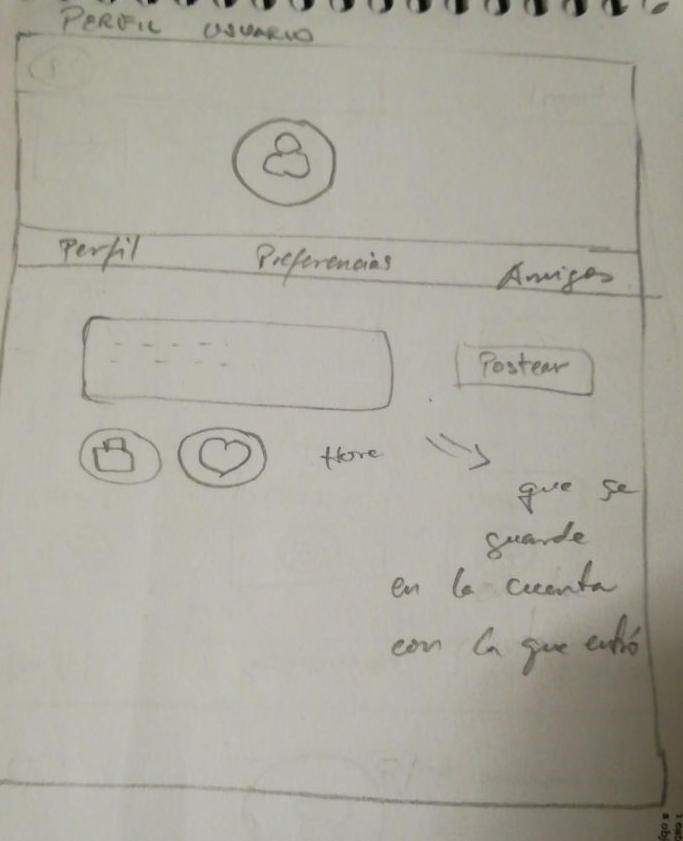 PERFIL USUARIO
Perfil Preferencias Amigos
Postear
Hore
que se
guarde
en la cuenta
con la que entró